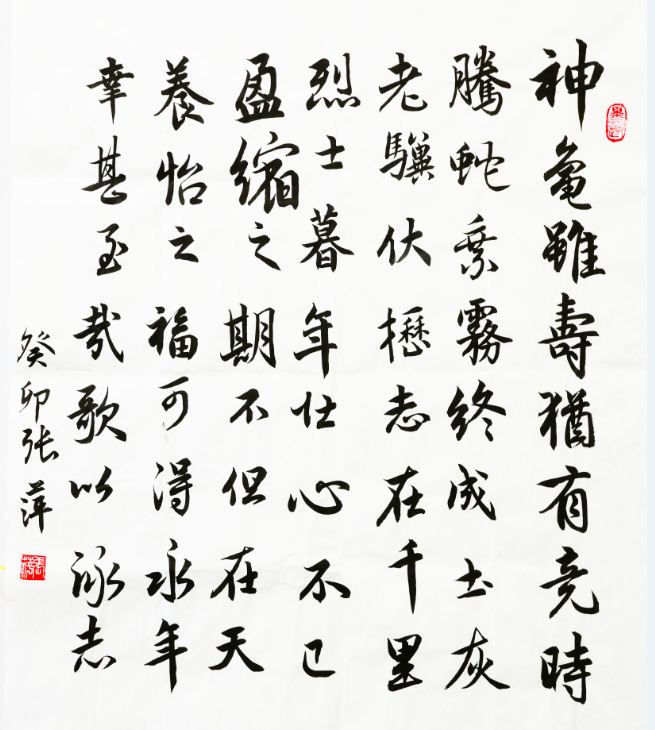 神龜雖壽猶有竟時
騰蛇乘霧終成土灰
老驥伏櫪志在千里
烈士暮年壯心不已
盈縮之期不但在天
養怡之福可得永年
幸甚至哉歌以詠志
癸卯張萍